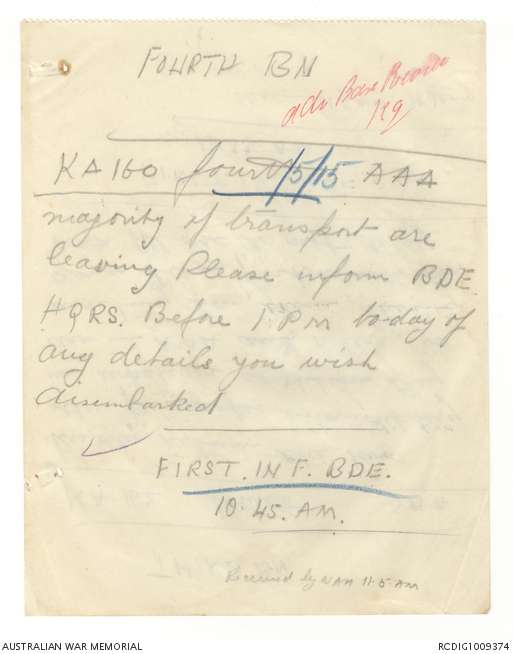 FOURTH BN
KA 160 fourth /5/15 AAA
majority of transport are
leaving Please inform BDE
HQRS. Before 1. PM to-day of
any details you wish
disembarked
FIRST. INF. BDE.
10.45. AM.
Received by 11.5 AM
AUSTRALIAN WAR MEMORIAL
RCDIG1009374